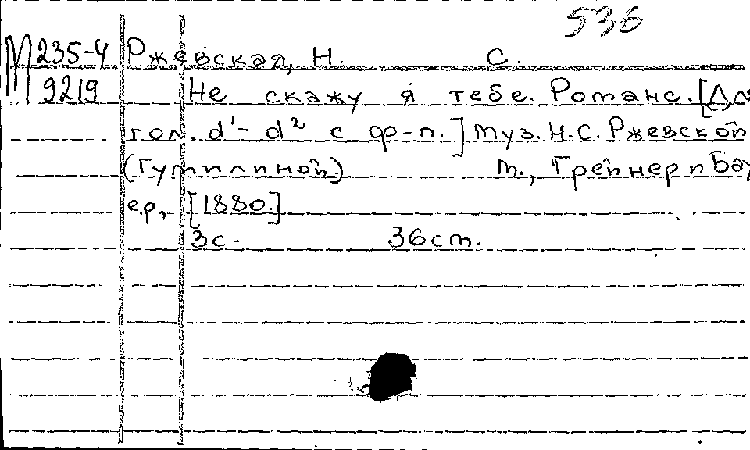 536
М 235-4 Ржевская, Н. С.
9219 Не скажу я тебе. Романс. [Дл
гол. d¹- d² с ф-п.] Муз. Н.С. Ржевской
(Гутилиной) М., Грейнер и Бау
ер, [1880.]
3с. 36cm.